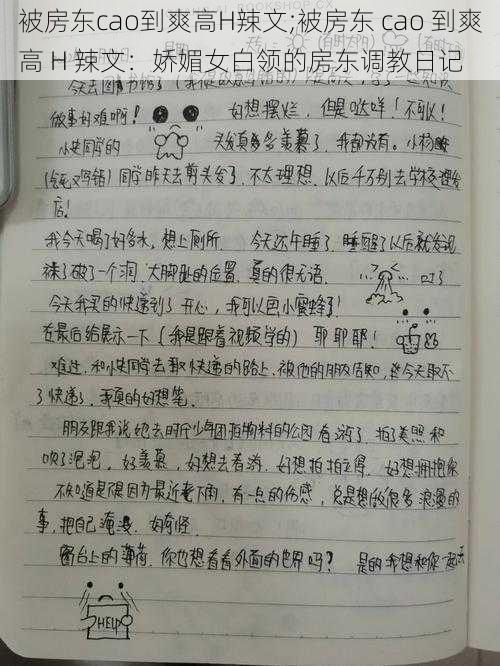 被房东cao到爽高H辣文;被房东 cao 到爽
高 H 辣文：娇媚女白领的房东调教日记
今天去图书馆了
做事好难啊！ 好想摆烂，但是哒咩！不可以！
小史同学的 头发真多多羡慕了，我都没有。小杨
同学昨天去剪头发了，不太理想，以后千万别去学校理发
店！
我今天喝了好多水，想上厕所。 今天还午睡了，睡醒了以后就发现
袜子破了一个洞，大脚趾的位置，真的很无语。
今天我买的快递到了 开心，我可以画小蜜蜂了！
在最后给展示一下（我是跟着视频学的）耶耶耶！
难过，和小史同学去取快递的路上，被他的朋友告知，今天取不
了快递了，我真的好想笔。
朋友跟我说她去 的公园看 了，拍了美照和
吹了泡泡，好羡慕，好想去看海，好想拍拍立得，好想拥抱你
不知道是不是因为最近老下雨，有一点的伤感，总是想做很多浪漫的
事，把自己淹没，好奇怪。
窗台上的薄荷，你也想看看外面的世界吗？ 是的我想和你一起去
HELP